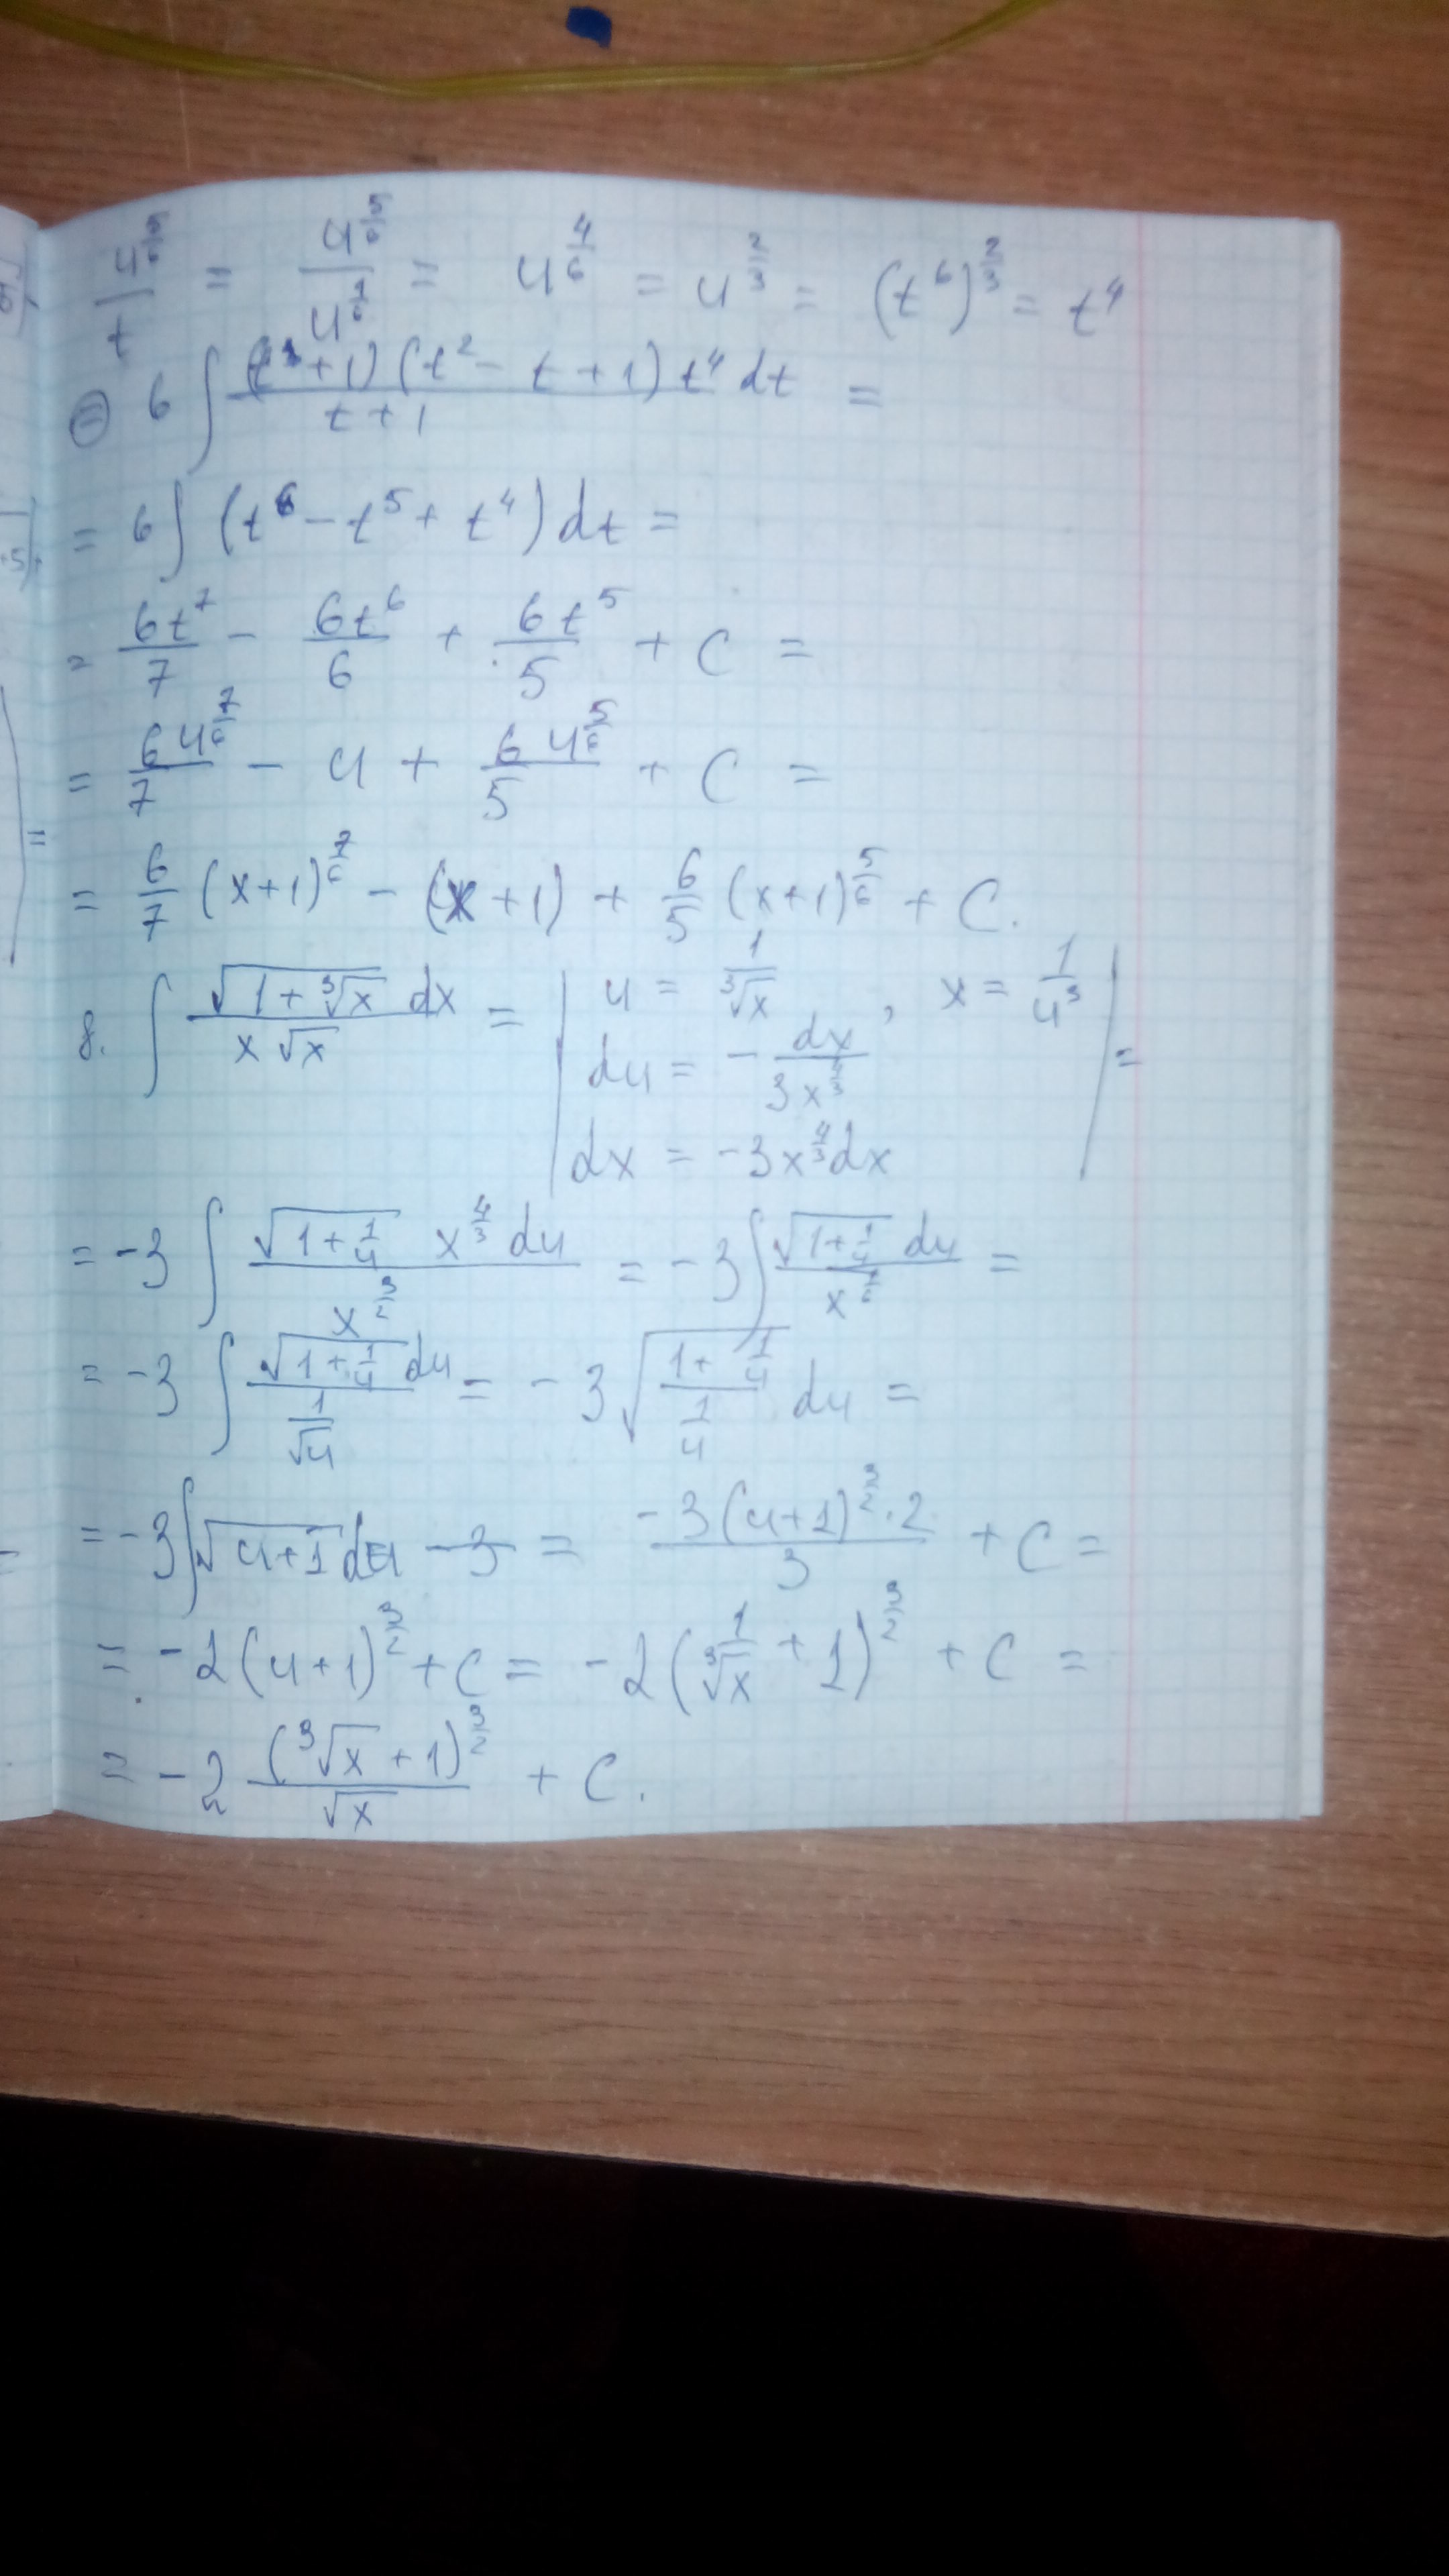 u^(5/6)/t = u^(5/6)/u^(1/6) = u^(4/6) = u^(2/3) = (t^6)^(2/3) = t^4
⊜ 6 ∫ (t+1)(t² - t + 1) t⁴ dt / (t+1) =
= 6 ∫ (t⁶ - t⁵ + t⁴) dt =
= 6t⁷/7 - 6t⁶/6 + 6t⁵/5 + C =
= 6u^(7/6)/7 - u + 6u^(5/6)/5 + C =
= 6/7 (x+1)^(7/6) - (x+1) + 6/5 (x+1)^(5/6) + C.
8. ∫ √(1+∛x) dx / (x√x) = | u = 1/∛x, x = 1/u³ | =
du = - dx/(3x^(4/3))
dx = -3x^(4/3) dx
= -3 ∫ √(1+1/u) x^(4/3) du / x^(3/2) = -3 ∫ √(1+1/u) du / x^(1/6) =
= -3 ∫ √(1+1/u) du / (1/√u) = -3 √((1+1/u)/(1/u)) du =
= -3 ∫ √(u+1) du = -3(u+1)^(3/2)·2/3 + C =
= -2(u+1)^(3/2) + C = -2(1/∛x + 1)^(3/2) + C =
= -2 (∛x + 1)^(3/2)/√x + C.